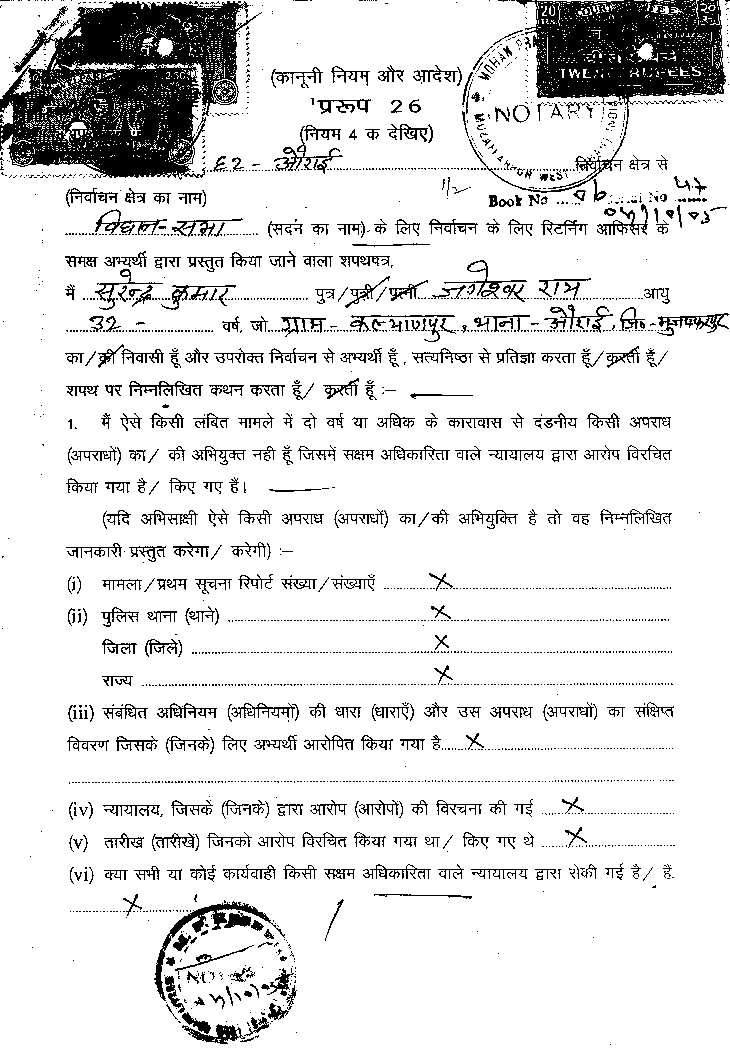 20
TWENTY RUPEES
(कानूनी नियम और आदेश)
'प्ररूप 26
(नियम 4 क देखिए)
NOTARY
62 - औराई निर्वाचन क्षेत्र से
(निर्वाचन क्षेत्र का नाम)
1/2
Book No 06 No 47
04/10/05
विधान-सभा (सदन का नाम) के लिए निर्वाचन के लिए रिटर्निंग आफिसर के
समक्ष अभ्यर्थी द्वारा प्रस्तुत किया जाने वाला शपथपत्र,
मैं सुरेन्द्र कुमार पुत्र/पुत्री/पत्नी जगेश्वर राम आयु
32 - वर्ष, जो ग्राम - कल्याणपुर, थाना - औराई, जि०-मुजफ्फरपुर
का/की निवासी हूँ और उपरोक्त निर्वाचन से अभ्यर्थी हूँ, सत्यनिष्ठा से प्रतिज्ञा करता हूँ/करती हूँ/
शपथ पर निम्नलिखित कथन करता हूँ/ करती हूँ :–
1. मैं ऐसे किसी लंबित मामले में दो वर्ष या अधिक के कारावास से दंडनीय किसी अपराध
(अपराधों) का/ की अभियुक्त नही हूँ जिसमें सक्षम अधिकारिता वाले न्यायालय द्वारा आरोप विरचित
किया गया है/ किए गए हैं।
(यदि अभिसाक्षी ऐसे किसी अपराध (अपराधों) का/की अभियुक्ति है तो वह निम्नलिखित
जानकारी प्रस्तुत करेगा/ करेगी) :–
(i) मामला/प्रथम सूचना रिपोर्ट संख्या/संख्याएँ X
(ii) पुलिस थाना (थाने) X
जिला (जिले) X
राज्य X
(iii) संबंधित अधिनियम (अधिनियमों) की धारा (धाराएँ) और उस अपराध (अपराधों) का संक्षिप्त
विवरण जिसके (जिनके) लिए अभ्यर्थी आरोपित किया गया है X
(iv) न्यायालय, जिसके (जिनके) द्वारा आरोप (आरोपों) की विरचना की गई X
(v) तारीख (तारीखें) जिनको आरोप विरचित किया गया था/ किए गए थे X
(vi) क्या सभी या कोई कार्यवाही किसी सक्षम अधिकारिता वाले न्यायालय द्वारा रोकी गई है/ हैं.
X